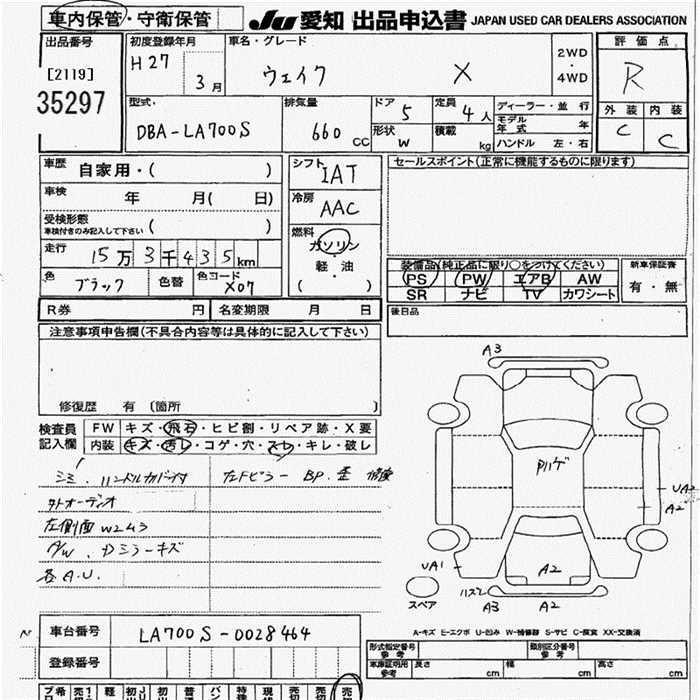 車内保管・守衛保管
JU 愛知 出品申込書 JAPAN USED CAR DEALERS ASSOCIATION
出品番号 初度登録年月 車名・グレード 評価点
[2119] H27 3月 ウェイク X 2WD・4WD R
35297
型式. 排気量 ドア 5 定員 4人 ディーラー・並行 外装 内装
DBA-LA700S 660cc 形状 W 積載 kg モデル年式 年 C C
ハンドル 左・右
車歴 自家用・( ) シフト IAT セールスポイント(正常に機能するものに限ります)
車検 年 月( 日) 冷房 AAC
受検形態 車検付きのみ記入して下さい ( )
燃料 ガソリン・軽・油 ( )
走行 15万3千435km
装備品(純正品に限り○をつけてください) 新車保証書
色 ブラック 色替 色コード X07
PS PW エアB AW 有・無
SR ナビ TV カワシート
R券 円 名変期限 月 日 後日品
注意事項申告欄(不具合内容等は具体的に記入して下さい)
修復歴 有 (箇所 )
検査員記入欄 FW キズ・飛石・ヒビ割・リペア跡・X要
内装 キズ・汚レ・コゲ・穴・スレ・キレ・破レ
シミ. ハンドルカバー付 左Fピラー BP.歪 修復
外オーディオ
左側面 W2 U3
A/W. Dミラーキズ
各A.U.
A3
Pハゲ
A2
UA1
A2
ハズレ
A3 A2
スペア
A-キズ E-エクボ U-凹み W-補修跡 S-サビ C-腐食 XX-交換済
車台番号 LA700S-0028464
登録番号
形式指定番号 参考 類別区分番号 参考
車庫証明用 参考 長さ cm 幅 cm 高さ cm